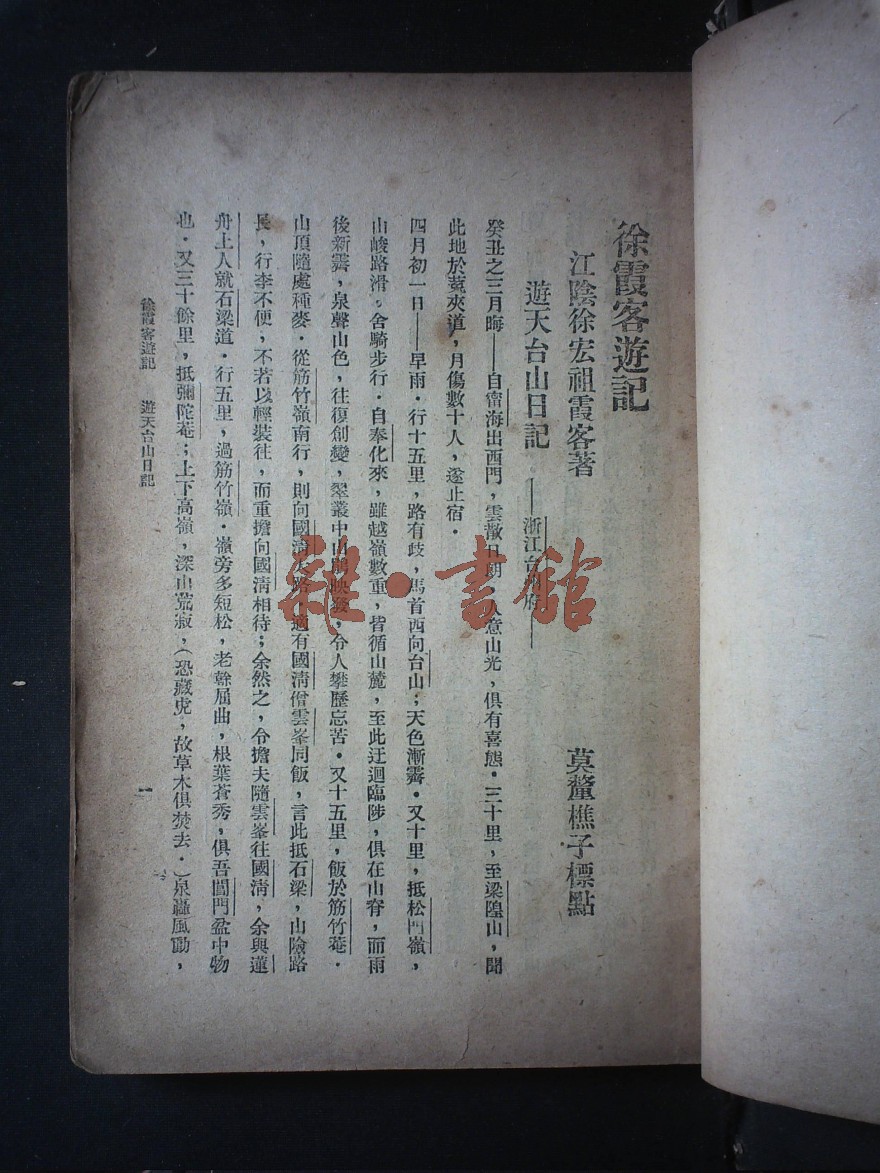 徐霞客遊記
江陰徐宏祖霞客著
莫釐樵子標點
遊天台山日記——浙江台州府——
癸丑之三月晦——自甯海出西門，雲散日朗，人意山光，俱有喜態．三十里，至梁隍山，聞
此地於菟夾道，月傷數十人，遂止宿．
四月初一日——早雨．行十五里，路有歧，馬首西向台山；天色漸霽．又十里，抵松門嶺，
山峻路滑。舍騎步行．自奉化來，雖越嶺數重，皆循山麓，至此迂迴臨陟，俱在山脊，而雨
後新霽，泉聲山色，往復創變，翠叢中山鵑映發，令人攀歷忘苦．又十五里，飯於筋竹菴．
山頂隨處種麥．從筋竹嶺南行，則向國清大路．適有國清僧雲峯同飯，言此抵石梁，山險路
長，行李不便，不若以輕裝往，而重擔向國清相待；余然之，令擔夫隨雲峯往國清，余與蓮
舟上人就石梁道．行五里，過筋竹嶺．嶺旁多短松，老幹屈曲，根葉蒼秀，俱吾閶門盆中物
也．又三十餘里，抵彌陀菴；上下高嶺，深山荒寂，（恐藏虎，故草木俱焚去．）泉轟風動，
徐霞客遊記　遊天台山日記
一
雜·書館